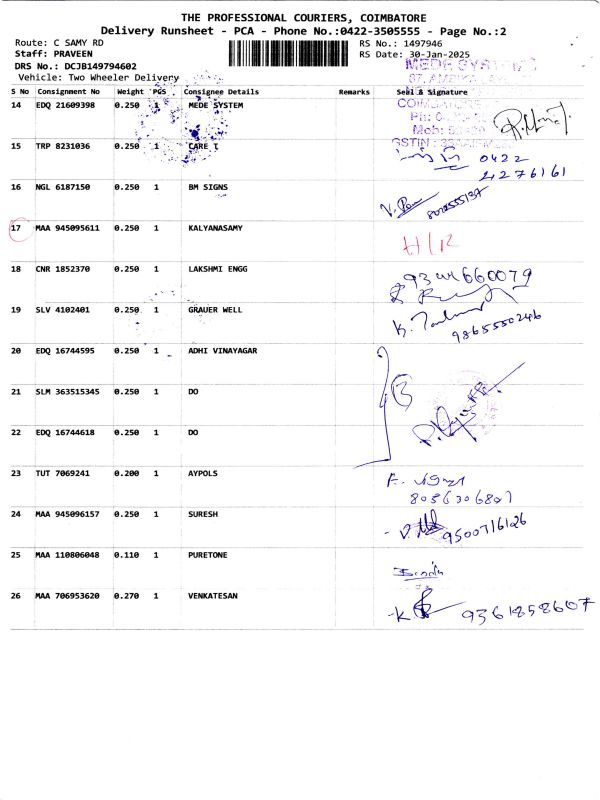 THE PROFESSIONAL COURIERS, COIMBATORE
Delivery Runsheet - PCA - Phone No.:0422-3505555 - Page No.:2
Route: C SAMY RD RS No.: 1497946
Staff: PRAVEEN RS Date: 30-Jan-2025
DRS No.: DCJB149794602
Vehicle: Two Wheeler Delivery
S No Consignment No Weight PCS Consignee Details Remarks Seal & Signature
14 EDQ 21609398 0.250 1 MEDE SYSTEM
15 TRP 8231036 0.250 1 CARE T
0422
4276161
16 NGL 6187150 0.250 1 BM SIGNS
17 MAA 945095611 0.250 1 KALYANASAMY
H/R
18 CNR 1852370 0.250 1 LAKSHMI ENGG
19 SLV 4102401 0.250 1 GRAUER WELL
9865550246
20 EDQ 16744595 0.250 1 ADHI VINAYAGAR
21 SLM 363515345 0.250 1 DO
22 EDQ 16744618 0.250 1 DO
23 TUT 7069241 0.200 1 AYPOLS
8056306807
24 MAA 945096157 0.250 1 SURESH
9500716126
25 MAA 110806048 0.110 1 PURETONE
26 MAA 706953620 0.270 1 VENKATESAN
9361858607